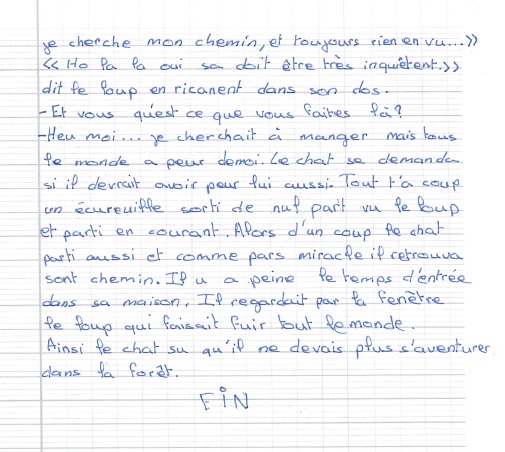 je cherche mon chemin, et toujours rien en vu...>>
<< Ho la la oui sa doit être très inquiètent.>>
dit le loup en ricanent dans son dos.
- Et vous qu'est ce que vous faites là?
-Heu moi... je cherchait à manger mais tous
le monde a peur demoi. Le chat se demanda
si il devrait avoir peur lui aussi. Tout t'a coup
un écureuille sorti de nul part vu le loup
et parti en courant. Alors d'un coup le chat
parti aussi et comme pars miracle il retrouva
sont chemin. Il u a peine le temps d'entrée
dans sa maison. Il regardait par la fenêtre
le loup qui faisait fuir tout le monde.
Ainsi le chat su qu'il ne devais plus s'aventurer
dans la forêt.
FiN